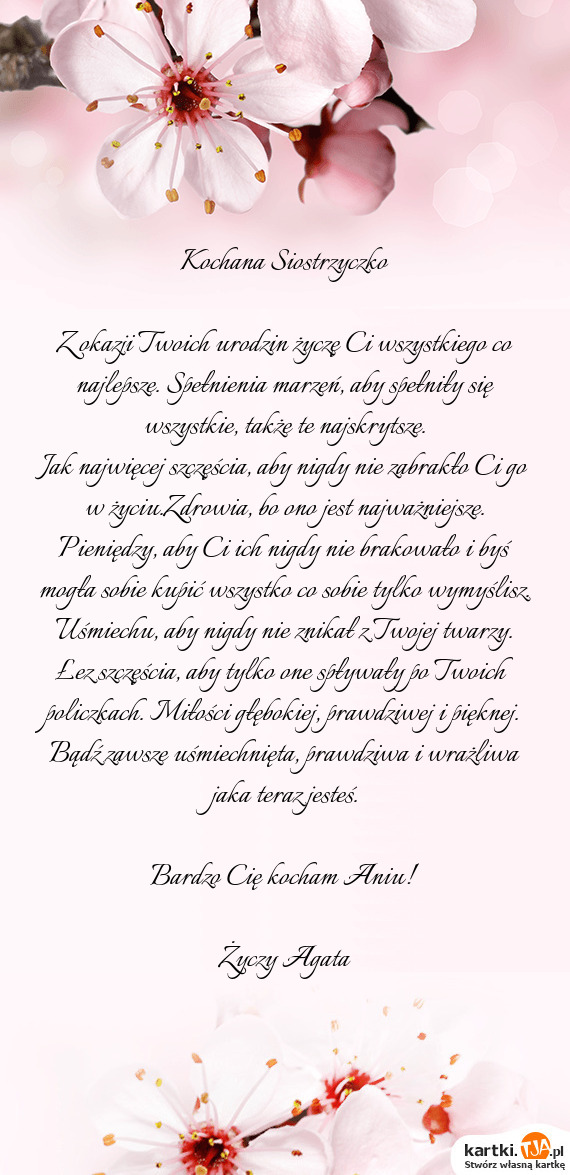 Kochana Siostrzyczko
Z okazji Twoich urodzin życzę Ci wszystkiego co
najlepsze. Spełnienia marzeń, aby spełniły się
wszystkie, także te najskrytsze.
Jak najwięcej szczęścia, aby nigdy nie zabrakło Ci go
w życiu.Zdrowia, bo ono jest najważniejsze.
Pieniędzy, aby Ci ich nigdy nie brakowało i byś
mogła sobie kupić wszystko co sobie tylko wymyślisz.
Uśmiechu, aby nigdy nie znikał z Twojej twarzy.
Łez szczęścia, aby tylko one spływały po Twoich
policzkach. Miłości głębokiej, prawdziwej i pięknej.
Bądź zawsze uśmiechnięta, prawdziwa i wrażliwa
jaka teraz jesteś.
Bardzo Cię kocham Aniu!
Życzy Agata
kartki.TJA.pl
Stwórz własną kartkę